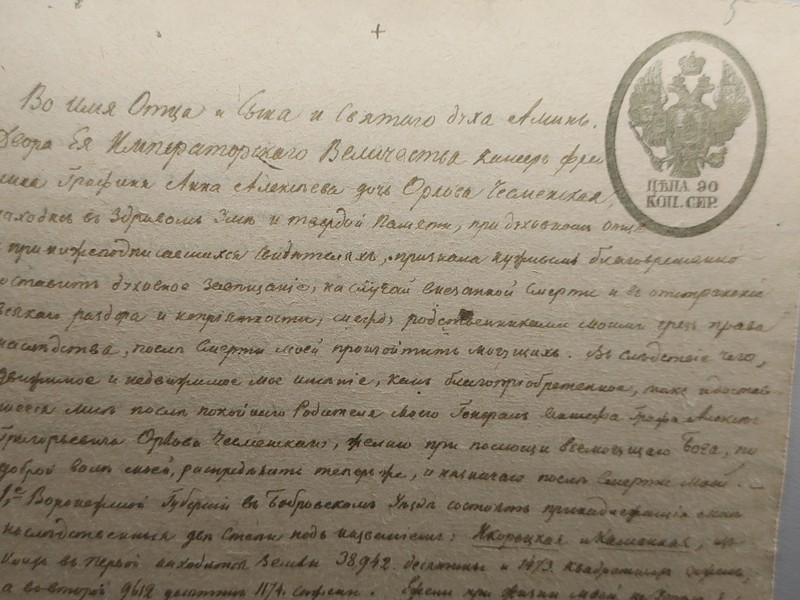 5
ЦѢНА 90
КОП. СЕР.
Во имя Отца и Сына и Святаго духа Аминь.
Двора Ея Императорскаго Величества камеръ фрей
лина Графиня Анна Алексѣева дочь Орлова Чесменская,
находясь въ здравомъ умѣ и твердой памяти, при духовномъ отцѣ
и при нижеподписавшихся свидѣтеляхъ, признала нужнымъ благовременно
оставить духовное завѣщаніе, на случай внезапной смерти и въ отвращеніе
всякаго раздора и непріятности, между родственниками моими чрезъ права
наслѣдства, послѣ смерти моей произойтить могущихъ. Въ слѣдствіе чего,
движимое и недвижимое мое имѣніе, какъ благопріобретенное, такъ и достав
шееся мнѣ послѣ покойнаго Родителя моего Генерала Графа Алексѣя
Григорьевича Орлова Чесменскаго, желаю при помощи всемогущаго Бога, по
доброй волѣ моей, распредѣлить теперь же, и назначаю послѣ смерти моей.
1.е Воронежской Губерніи въ Бобровскомъ Уѣздѣ состоятъ принадлежащія мнѣ
наслѣдственныя двѣ Степи подъ названіемъ: Икорецкая и Каменная, изъ
коихъ въ первой находится Земли 38942. десятины и 1473. квадратныхъ сажень,
а во второй 9612 десятинъ 1174. сажени.